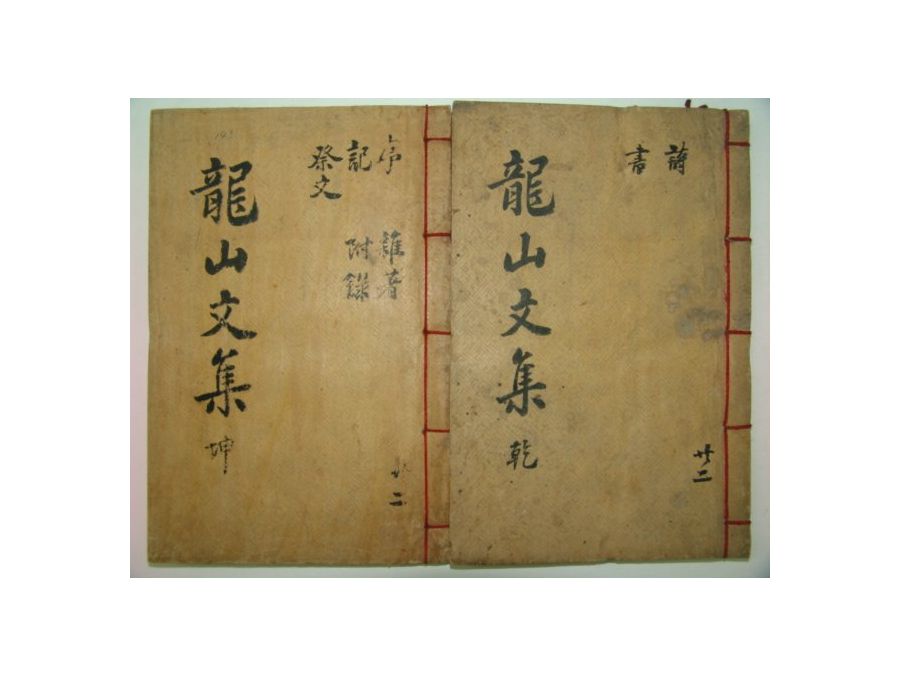 詩
書
龍山文集 乾
共二
序
記
祭文
雜著
附錄
龍山文集 坤